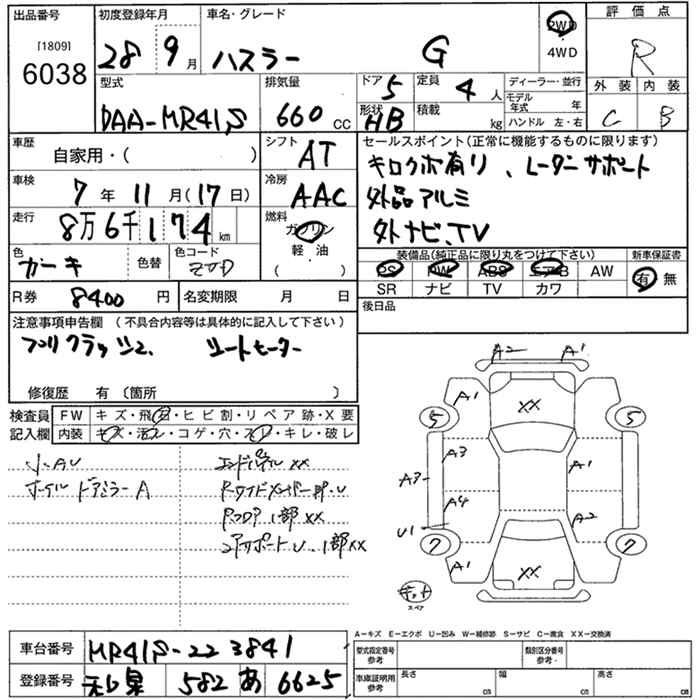 出品番号 初度登録年月 車名・グレード 評価点
[1809] 28 9月 ハスラー G 2WD 4WD R
6038
型式 排気量 ドア 5 定員 4人 ディーラー・並行 外装 内装
DAA-MR41S 660 CC 形状 HB 積載 kg モデル年式 年 C B
ハンドル 左・右
車歴 自家用・( ) シフト AT セールスポイント(正常に機能するものに限ります)
キロクボ有り、レーダーサポート
車検 7年11月(17日) 冷房 AAC 外品アルミ
走行 8万6千174km 燃料 ガソリン 軽・油 ( ) 外ナビ、TV
色 カーキ 色替 色コード 装備品(純正品に限り丸をつけて下さい) 新車保証書
PS PW ABS エアB AW 有 無
R券 8400円 名変期限 月 日 SR ナビ TV カワ
注意事項申告欄 (不具合内容等は具体的に記入して下さい) 後日品
シートヒーター
修復歴 有 〔箇所 〕
検査員記入欄 FW キズ・飛石・ヒビ割・リペア跡・X要
内装 キズ・活ス・コゲ・穴・スレ・キレ・破レ
小AU エンドパネルXX
ホイル ドアミラーA
Rフロア1部XX
1部XX
A2 A1
A1 XX
5 5
A3 A3 A1
A4 A2
U1
7 7
A1 XX
キット
スペア
A-キズ E-エクボ U-凹み W-補修跡 S-サビ C-腐食 XX-交換済
車台番号 MR41S-223841 型式指定番号 参考 類別区分番号 参考
登録番号 和泉 582 あ 6625 車庫証明用 参考 長さ cm 幅 cm 高さ cm